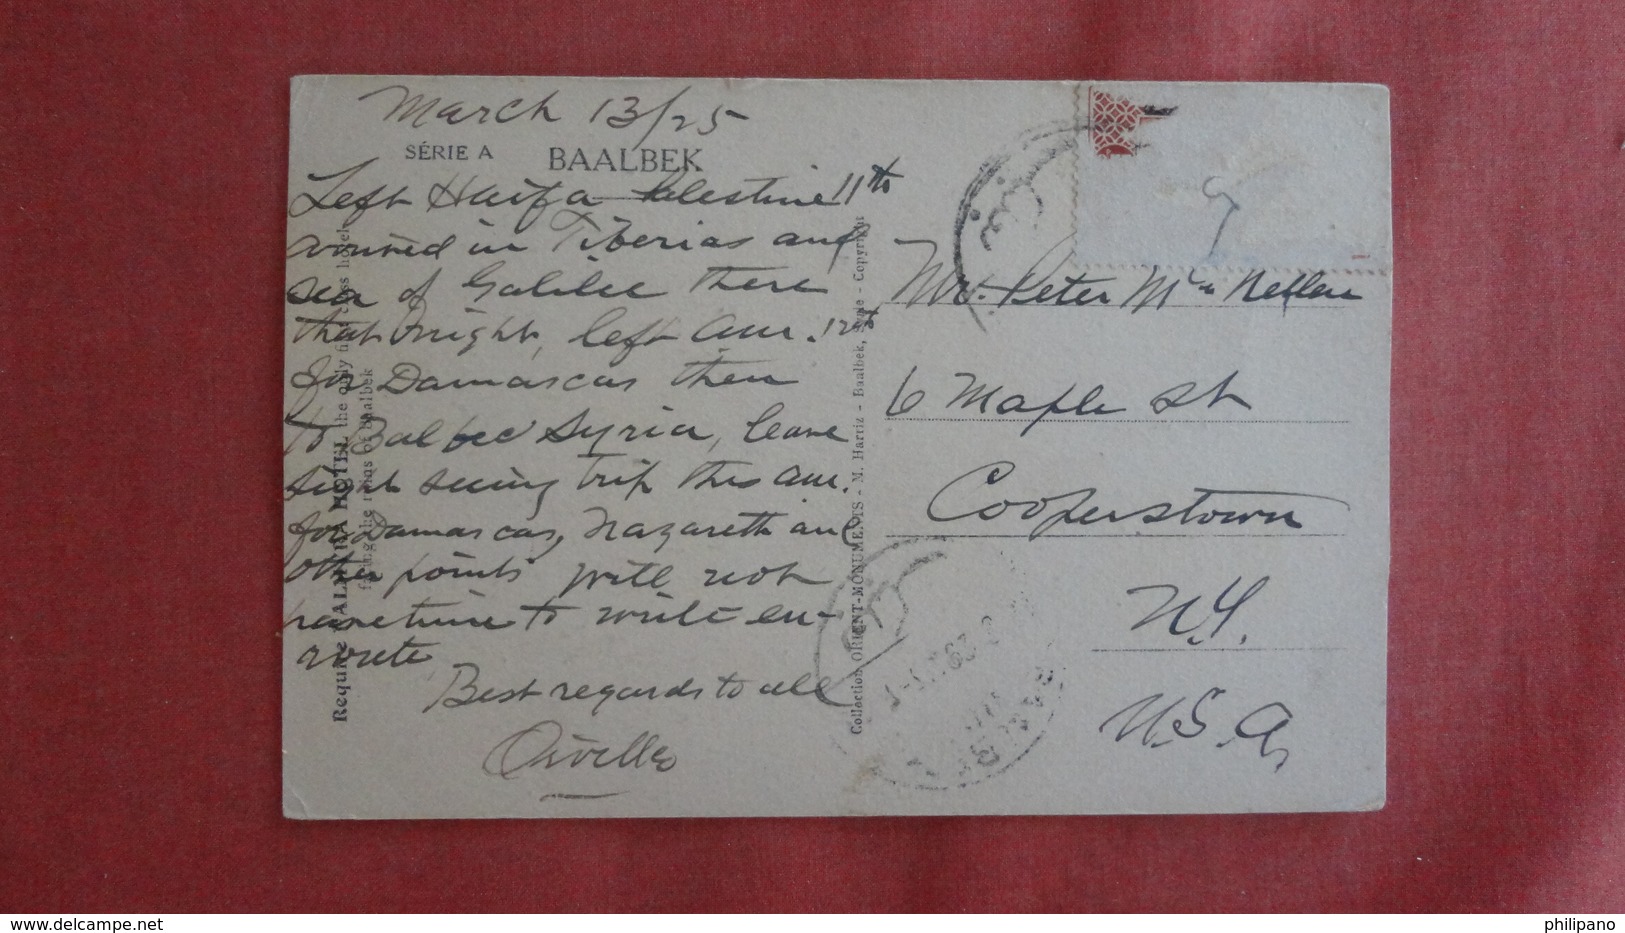 March 13/25
SÉRIE A BAALBEK
Left Haifa Palestine 11th
arrived in Tiberias and
sea of Galilee there
that night, left am. 12th
for Damascas then
to Balbec Syria, leave
sight seeing trip this am.
for Damascas, Nazareth and
other points will not
have time to write en-
route
Best regards to all
Orville
Mr. Peter
6 Maple St
Cooperstown
N.Y.
U.S.A,
Collection ORIENT-MONUMENTS - M. Harriz - Baalbek, - Copyright
HOTEL the only
ruins of Baalbek
delcampe.net
philipano